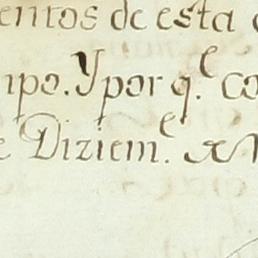 entos de esta
mpo. Y por q.e co
e Diziem.e